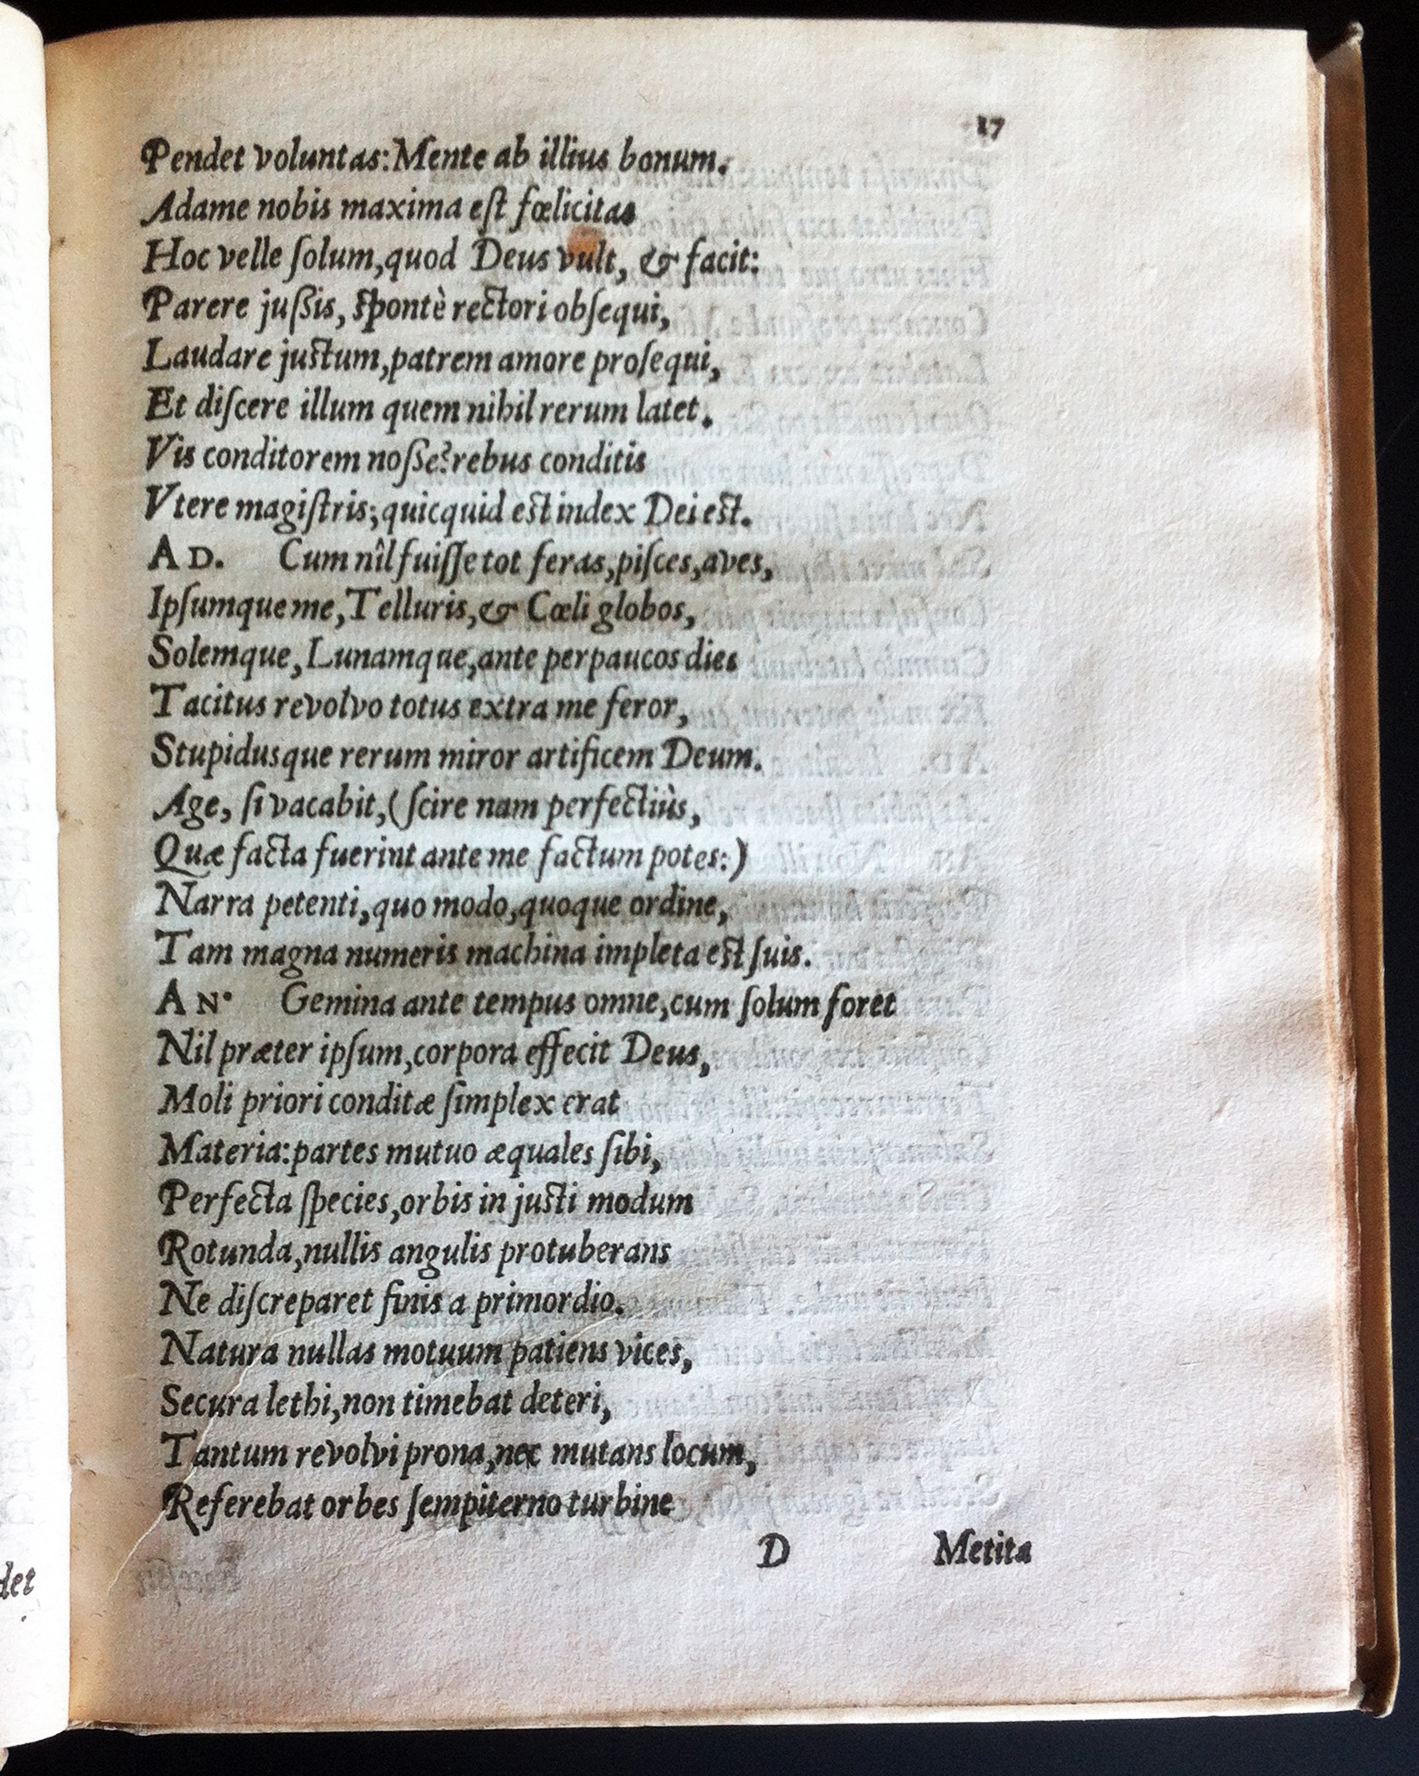 17
Pendet voluntas: Mente ab illius bonum.
Adame nobis maxima eſt fœlicitas
Hoc velle ſolum, quod Deus vult, & facit:
Parere juſsis, ſpontè rectori obſequi,
Laudare juſtum, patrem amore proſequi,
Et diſcere illum quem nihil rerum latet.
Vis conditorem noſse? rebus conditis
Vtere magiſtris; quicquid eſt index Dei eſt.
AD. Cum nîl fuiſſe tot feras, piſces, aves,
Ipſumque me, Telluris, & Cœli globos,
Solemque, Lunamque, ante perpaucos dies
Tacitus revolvo totus extra me feror,
Stupidusque rerum miror artificem Deum.
Age, ſi vacabit, (ſcire nam perfectiùs,
Quæ facta fuerint ante me factum potes:)
Narra petenti, quo modo, quoque ordine,
Tam magna numeris machina impleta eſt ſuis.
AN. Gemina ante tempus omne, cum ſolum foret
Nil præter ipſum, corpora effecit Deus,
Moli priori conditæ ſimplex erat
Materia: partes mutuo æquales ſibi,
Perfecta ſpecies, orbis in juſti modum
Rotunda, nullis angulis protuberans
Ne diſcreparet finis a primordio.
Natura nullas motuum patiens vices,
Secura lethi, non timebat deteri,
Tantum revolvi prona, nec mutans locum,
Referebat orbes ſempiterno turbine
D Metita
det